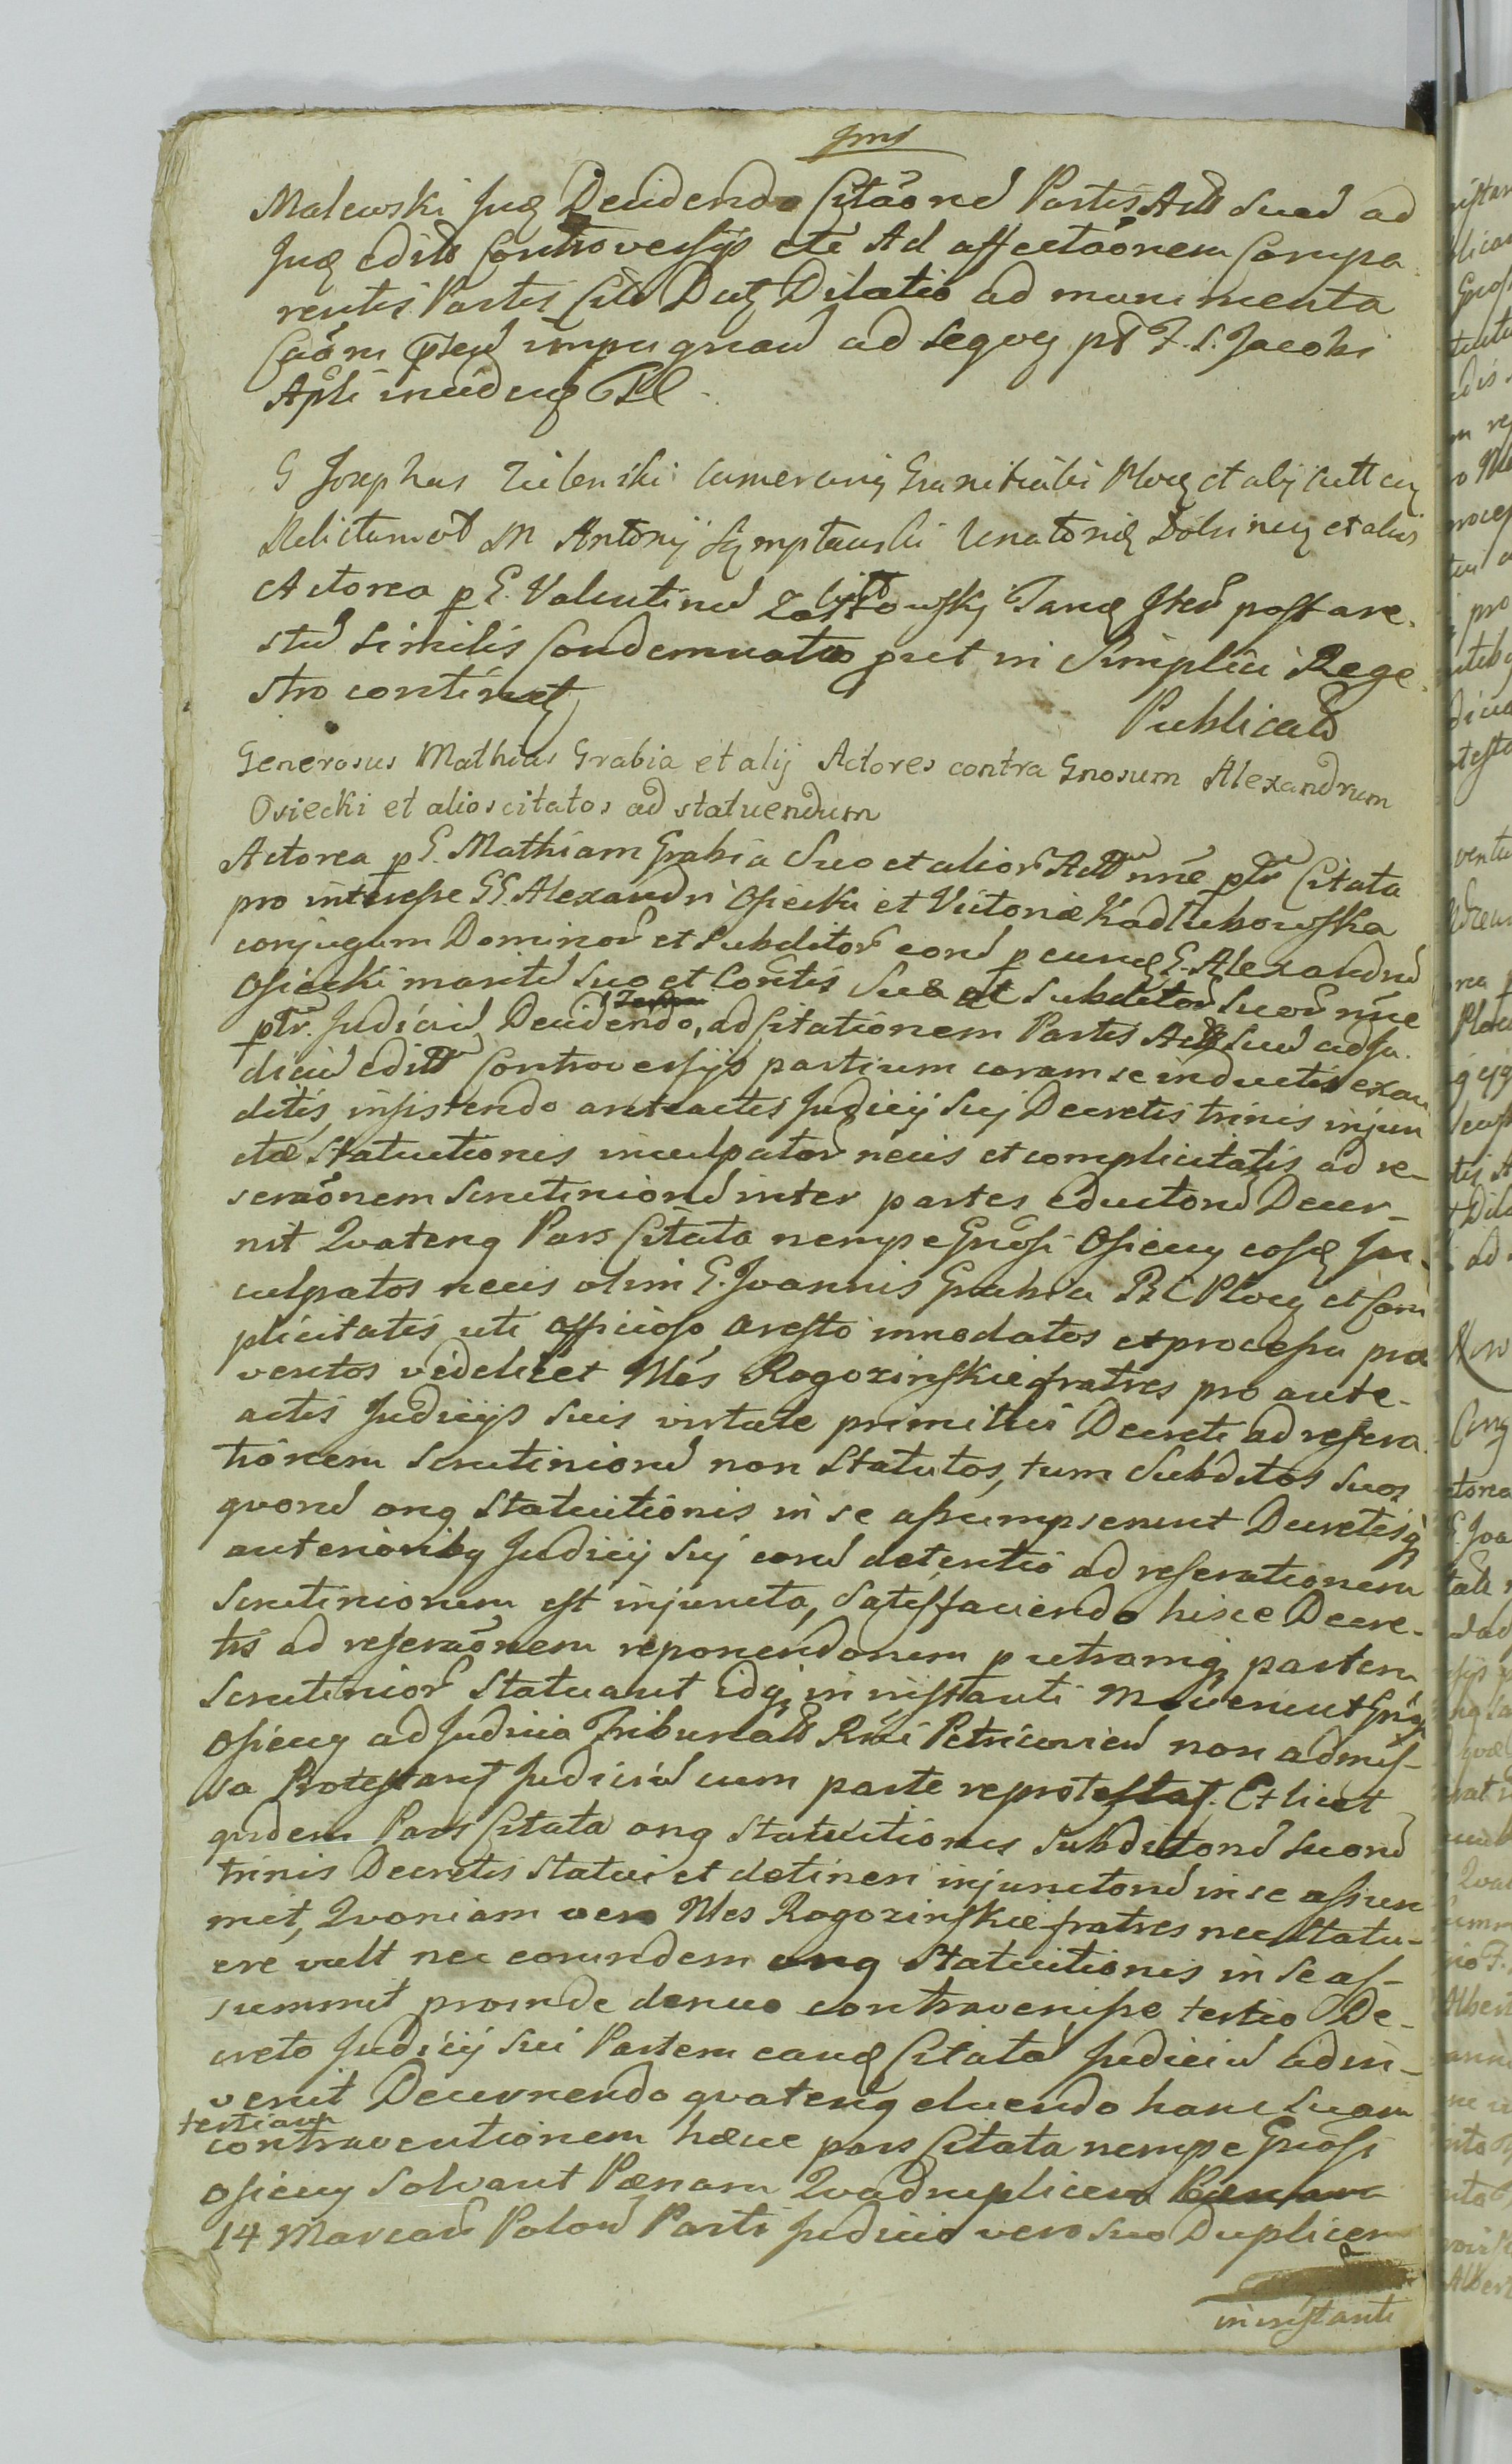 Malewski Juq Decidendo Citãone Partis Act Suad ad
Juq edits Controversijs etc Ad affectãonem Compa
rentis Partis Citt Dutz Dilatio ad munimenta
ad seqvey pt F. S. Jacobi
Apli
G Josephus Zielenski Camerarig Granitialis Plocz et alij
Relictam ol M Antonij Szymptawski Venatoris Dobrineg et alios
Actorea p G. Valentinu Tanq post are
stu Similis Condemnatio put in Simplici Rege
stro continetz
Publicats
Generosus Mathias Grabia et alij Actores contra Gnosum Alexandrum
Osiecki et alios citatos ad statuendum
Actorea p G. Mathiam Grabia Suo et alior Actt nne ptr Citata
pro interesse GG. Alexandri Osiecki et Victoriæ Kadlubowska
conjugum Dominor et Subditor eoru p eundq G. Alexandru
Osiecki maritu Suo et Contis Suæ et Subditor Suor nne
ptr. Judiciu Decidendo, ad Citationem Partis Actt Suu ad Ju
diciu editt Controversijs partium coram se inductis exau
ditis, insistendo anteactis Judicij Sui Decretis trinis injun
ctæ Statuitionis inculpator necis et complicitatis ad re-
serãonem Scrutinioru inter partes eductoru Decer-
nit Qvateng Pars Citata nempe Gnosi Osieccy eosq In-
culpatos necis olim G. Joannis Grabia B C Plocq et Com
plicitatis uti officioso aresto innodatos et processu præ
ventos videlicet Mes Rogozinskie fratres pro ante-
actis Judicijs Suis virtute primitivi Decreti ad resera
tionem Scrutinioru non Statutos, tum Subditos Suos
qvoru ong Statuitionis in se assumpserunt Decretisq
anterioribq Judicij Sui eoru detentio ad reserationem
Scrutiniorum est injuncta, Satisfaciendo hisce Decre-
tis ad reserãonem reponendorum p utramq partem
Scrutinior Statuant idq in instanti Moverunt Gnosi
Osieccy ad Judicia Tribunalis Rni Petricovien non admis-
sa Protestant Judiciu cum parte reprotestat. Et licet
qvidem Pars Citata ong Statuitionis Subditoru Suoru
trinis Decretis Statui et detineri injunctoru in se assum
mit, Qvoniam vero Mes Rogozinskie fratres nec Statu-
ere vult nec eorundem ong Statuitionis in se as-
summit proinde denuo contravenisse tertio De-
creto Judicij Sui Partem eandq Citatã Judiciu adin-
venit Decernendo qvatenq eluendo hanc Suam
tertiam
contraventionem hæcce pars Citata nempe Gnosi
Osieccy Solvant Pænam Qvadruplicem
14 Marcar Polon Parti Judicio vero suo Duplicem
in instanti